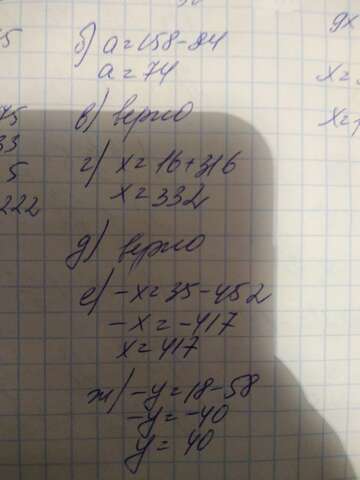 б) a=158-84
a=74
в) верно
г) x=16+316
x=332
д) верно
е) -x=35-452
-x=-417
x=417
ж) -y=18-58
-y=-40
y=40
5
75
33
5
222
9x
x=
x=